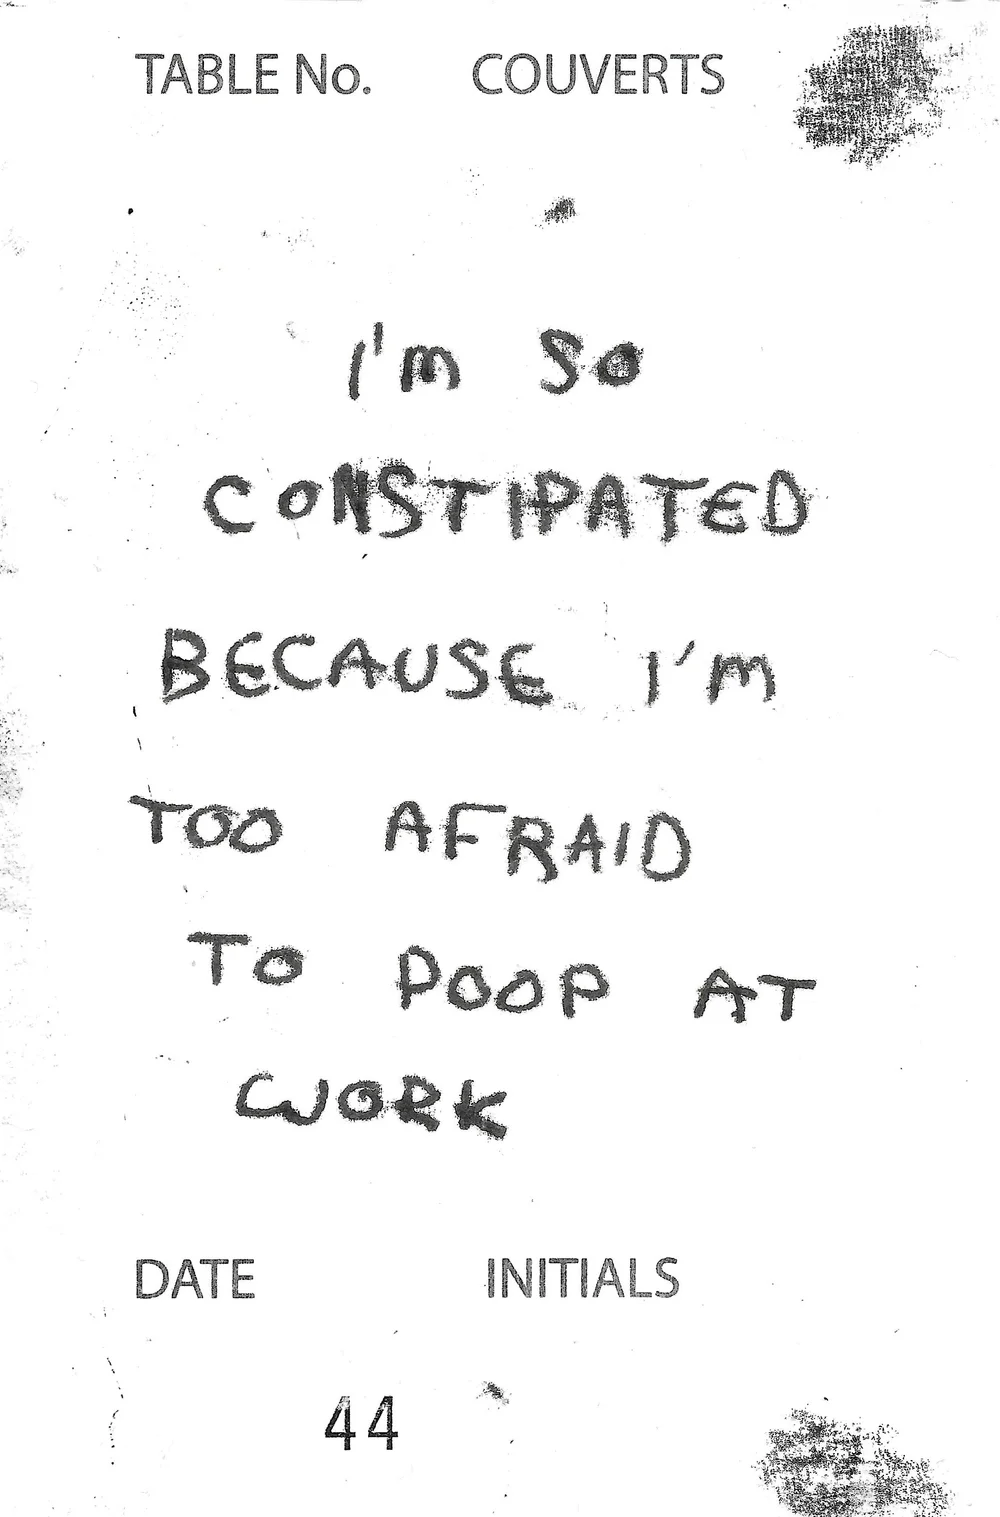 TABLE No. COUVERTS
I'm SO
CONSTIPATED
BECAUSE I'M
TOO AFRAID
TO POOP AT
WORK
DATE INITIALS
44